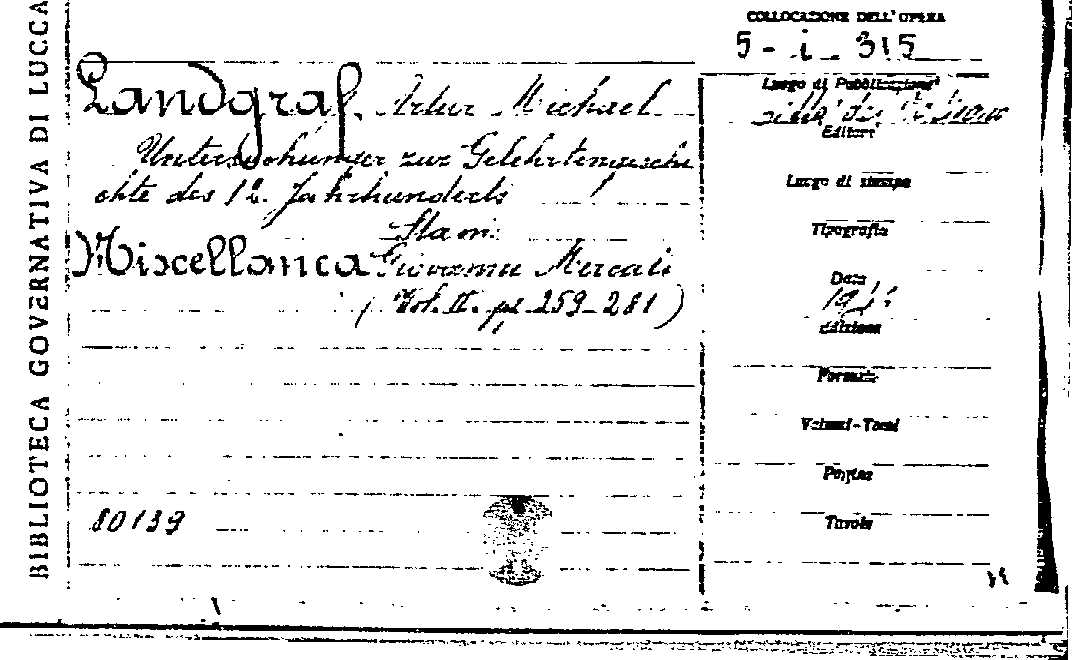 BIBLIOTECA GOVERNATIVA DI LUCCA
COLLOCAZIONE DELL'OPERA
5 - i - 315
Landgraf Artur Michael
Untersuchungen zur Gelehrtengeschi
chte des 12. Jahrhunderts
Stam.
Miscellanea Giovanni Mercati
( Vol. II. pp 259-281 )
80139
Luogo di Pubblicazione
città del
Editore
Luogo di stampa
Tipografia
Data
Edizione
Formato
Volumi-Tomi
Pagine
Tavole